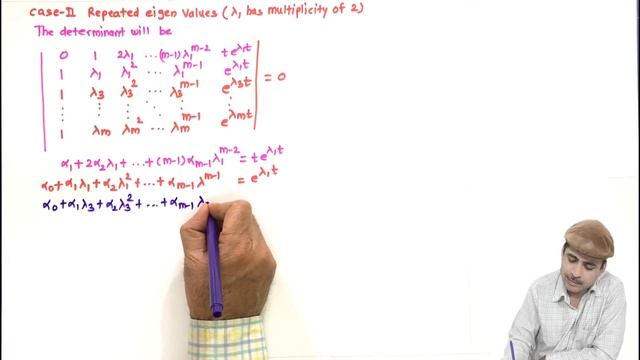 Case-II Repeated eigen values (λ₁ has multiplicity of 2)
The determinant will be
| 0 1 2λ₁ ... (m-1)λ₁^{m-2} te^{λ₁t} |
| 1 λ₁ λ₁² ... λ₁^{m-1} e^{λ₁t} |
| 1 λ₃ λ₃² ... λ₃^{m-1} e^{λ₃t} | = 0
| ⋮ ⋮ ⋮ ⋮ ⋮ |
| 1 λm λm² ... λm^{m-1} e^{λmt} |
α₁+2α₂λ₁+...+(m-1)α_{m-1}λ₁^{m-2} = te^{λ₁t}
α₀+α₁λ₁+α₂λ₁²+...+α_{m-1}λ^{m-1} = e^{λ₁t}
α₀+α₁λ₃+α₂λ₃²+...+α_{m-1}λ